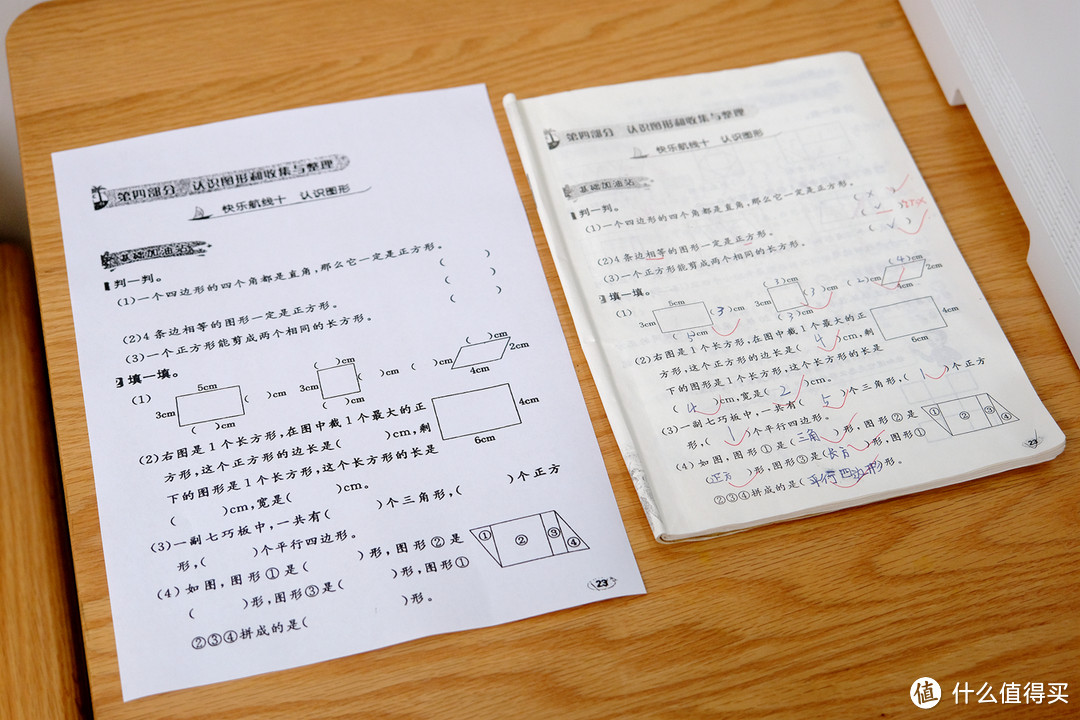 第四部分 认识图形和收集与整理
快乐航线十 认识图形
基础加油站
1 判一判。
(1)一个四边形的四个角都是直角,那么它一定是正方形。 ( )
(2)4条边相等的图形一定是正方形。 ( )
(3)一个正方形能剪成两个相同的长方形。 ( )
2 填一填。
(1) 5cm 3cm ( )cm ( )cm ( )cm 3cm ( )cm ( )cm ( )cm ( )cm 2cm 4cm
(2)右图是1个长方形,在图中截1个最大的正
方形,这个正方形的边长是( )cm,剩
下的图形是1个长方形,这个长方形的长是
( )cm,宽是( )cm。
4cm
6cm
(3)一副七巧板中,一共有( )个三角形,( )个正方
形,( )个平行四边形。
(4)如图,图形①是( )形,图形②是
( )形,图形③是( )形,图形①
②③④拼成的是( )形。
① ② ③ ④
23
第四部分 认识图形和收集与整理
快乐航线十 认识图形
基础加油站
1 判一判。
(1)一个四边形的四个角都是直角,那么它一定是正方形。 ( × )
(2)4条边相等的图形一定是正方形。 ( √ )
(3)一个正方形能剪成两个相同的长方形。 ( √ )
2 填一填。
(1) 5cm 3cm (3)cm (5)cm (3)cm 3cm (3)cm (4)cm (2)cm 2cm 4cm
(2)右图是1个长方形,在图中截1个最大的正
方形,这个正方形的边长是( 4 )cm,剩
下的图形是1个长方形,这个长方形的长是
( 4 )cm,宽是( 2 )cm。
4cm
6cm
(3)一副七巧板中,一共有( 5 )个三角形,( 1 )个正方
形,( 1 )个平行四边形。
(4)如图,图形①是(三角)形,图形②是
(正方)形,图形③是(长方)形,图形①
②③④拼成的是(平行四边形)形。
① ② ③ ④
23
值 什么值得买